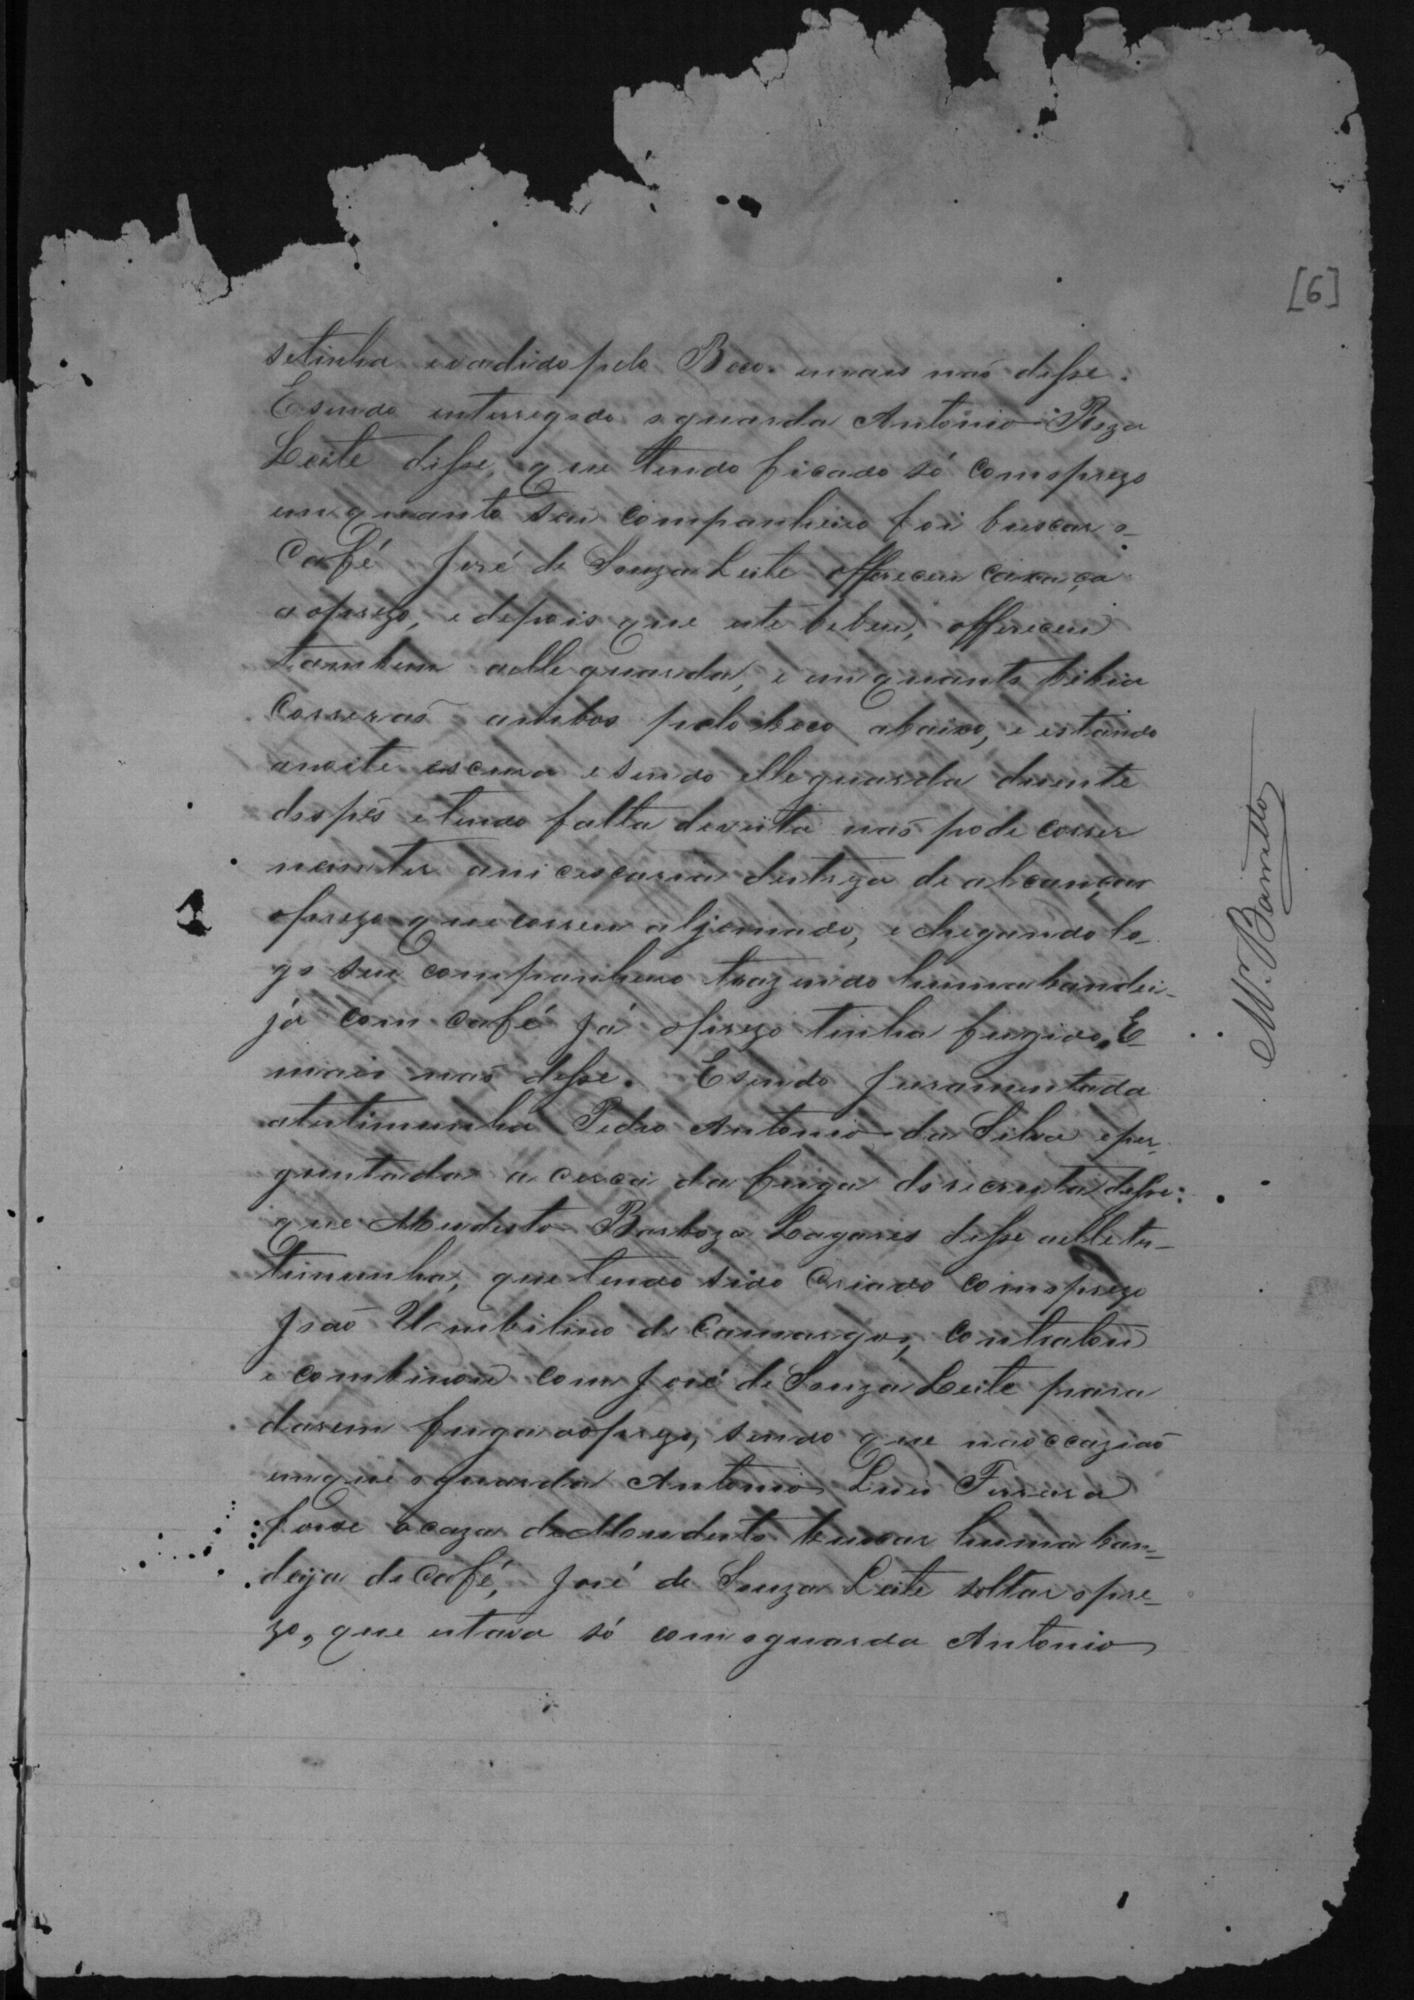 [6]
setinha evadido pelo Beco. emais não disse.
Esendo enterrogado oguarda Antonio Roza
Leite disse, que tendo ficado só comoprezo
emquanto seu companheiro foi buscar o
Café José de Souza Leite offereceu caxaça
aoprezo, edepois que este bebeu, offereceu
tambem aelle guarda, e emquanto bibia
correrão ambos pelo beco abaixo, e estando
anoite escura esendo elleguarda duente
dospés etendo falta devista não pode correr
nemter anicescaria destreza de alcançar
oprezo que correu aljemado, e chegando lo-
go seu companheiro trazendo huma bandei-
ja com café já oprezo tinha fugido, E
mais não disse. Esendo juramentada
atestimunha Pedro Antonio da Silva eper-
guntada a cerca da fuga dorecruta disse:
que Modesto Barboza Lagares disse aelle tes-
timunha, que tendo sido Criado comoprezo
João Umbilino de Camargos, contratou
e combinou com José de Souza Leite para
darem fuga aoprezo, sendo que naoccazião
emque oguarda Antonio Luis Ferreira
fosse acaza de Modesto buscar huma ban-
deija de Café, José de Souza Leite soltar opre-
zo, que estava só comoguarda Antonio
M. Barretto